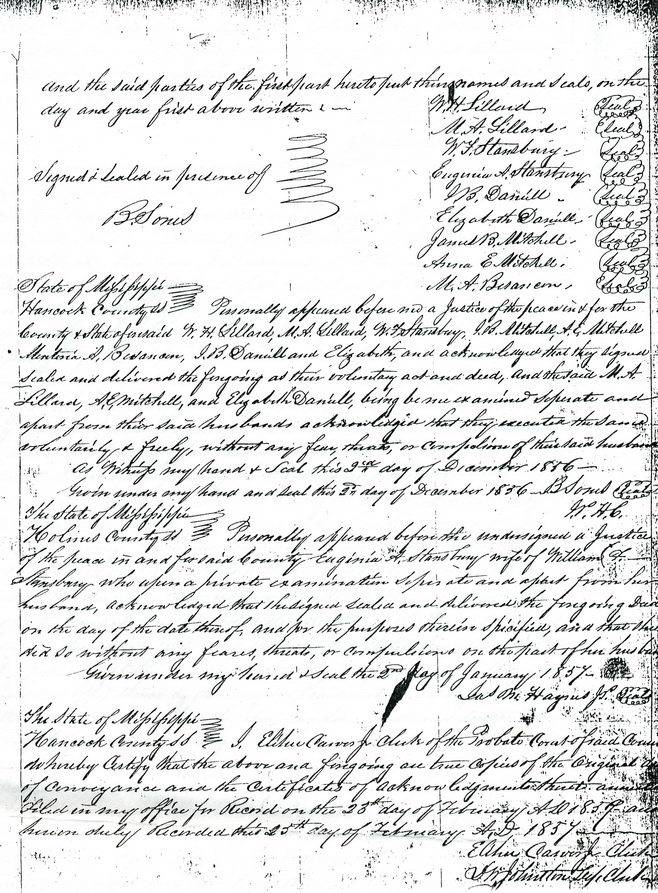 and the said parties of the first part hereto put their names and seals, on the
day and year first above written
W. H. Lillard Seal
M. A. Lillard Seal
W. F. Stansbury Seal
Signed & sealed in presence of
Eugenia A. Stansbury Seal
J. B. Daniell Seal
B Sones
Elizabeth Daniell Seal
James B. Mitchell Seal
Anna E Mitchell Seal
M. A. Besancon Seal
State of Mississippi
Hancock County SS Personally appeared before me a Justice of the peace in & for the
County & State aforesaid W. H. Lillard, M. A. Lillard, W. F. Stansbury, J. B. Mitchell, A. E. Mitchell
A. Besancon, J. B. Daniell and Elizabeth, and acknowledged that they signed
sealed and delivered the foregoing as their voluntary act and deed, and the said M. A.
Lillard, A. E. Mitchell, and Elizabeth Daniell, being by me examined seperate and
apart from their said husbands acknowledged that they executed the same
voluntarily & freely, without any fear, threats, or compulsion of their said husbands
As Witness my hand & Seal this 2nd day of December 1856
Given under my hand and seal this 2nd day of December 1856 B Sones Seal
The State of Mississippi
Holmes County SS Personally appeared before the undersigned a Justice
of the peace in and for said County Eugenia A. Stansbury wife of William F
Stansbury who upon a private examination seperate and apart from her
husband, acknowledged that she signed sealed and delivered the foregoing Deed
on the day of the date thereof, and for the purposes therein specified, and that she
did so without any fears, threats, or compulsions on the part of her husband
Given under my hand & seal the 2nd day of January 1857
Jas M Haynes J. Seal
The State of Mississippi
Hancock County SS I, Elihu Carver Jr Clerk of the Probate Court of said County
do hereby Certify that the above and foregoing are true copies of the Original
of conveyance and the Certificates of acknowledgment
Filed in my office for Record on the 23rd day of February A.D 1857, and
herein duly Recorded this 25th day of February A.D. 1857
Elihu Carver Jr Clerk
Johnston Dep. Clerk